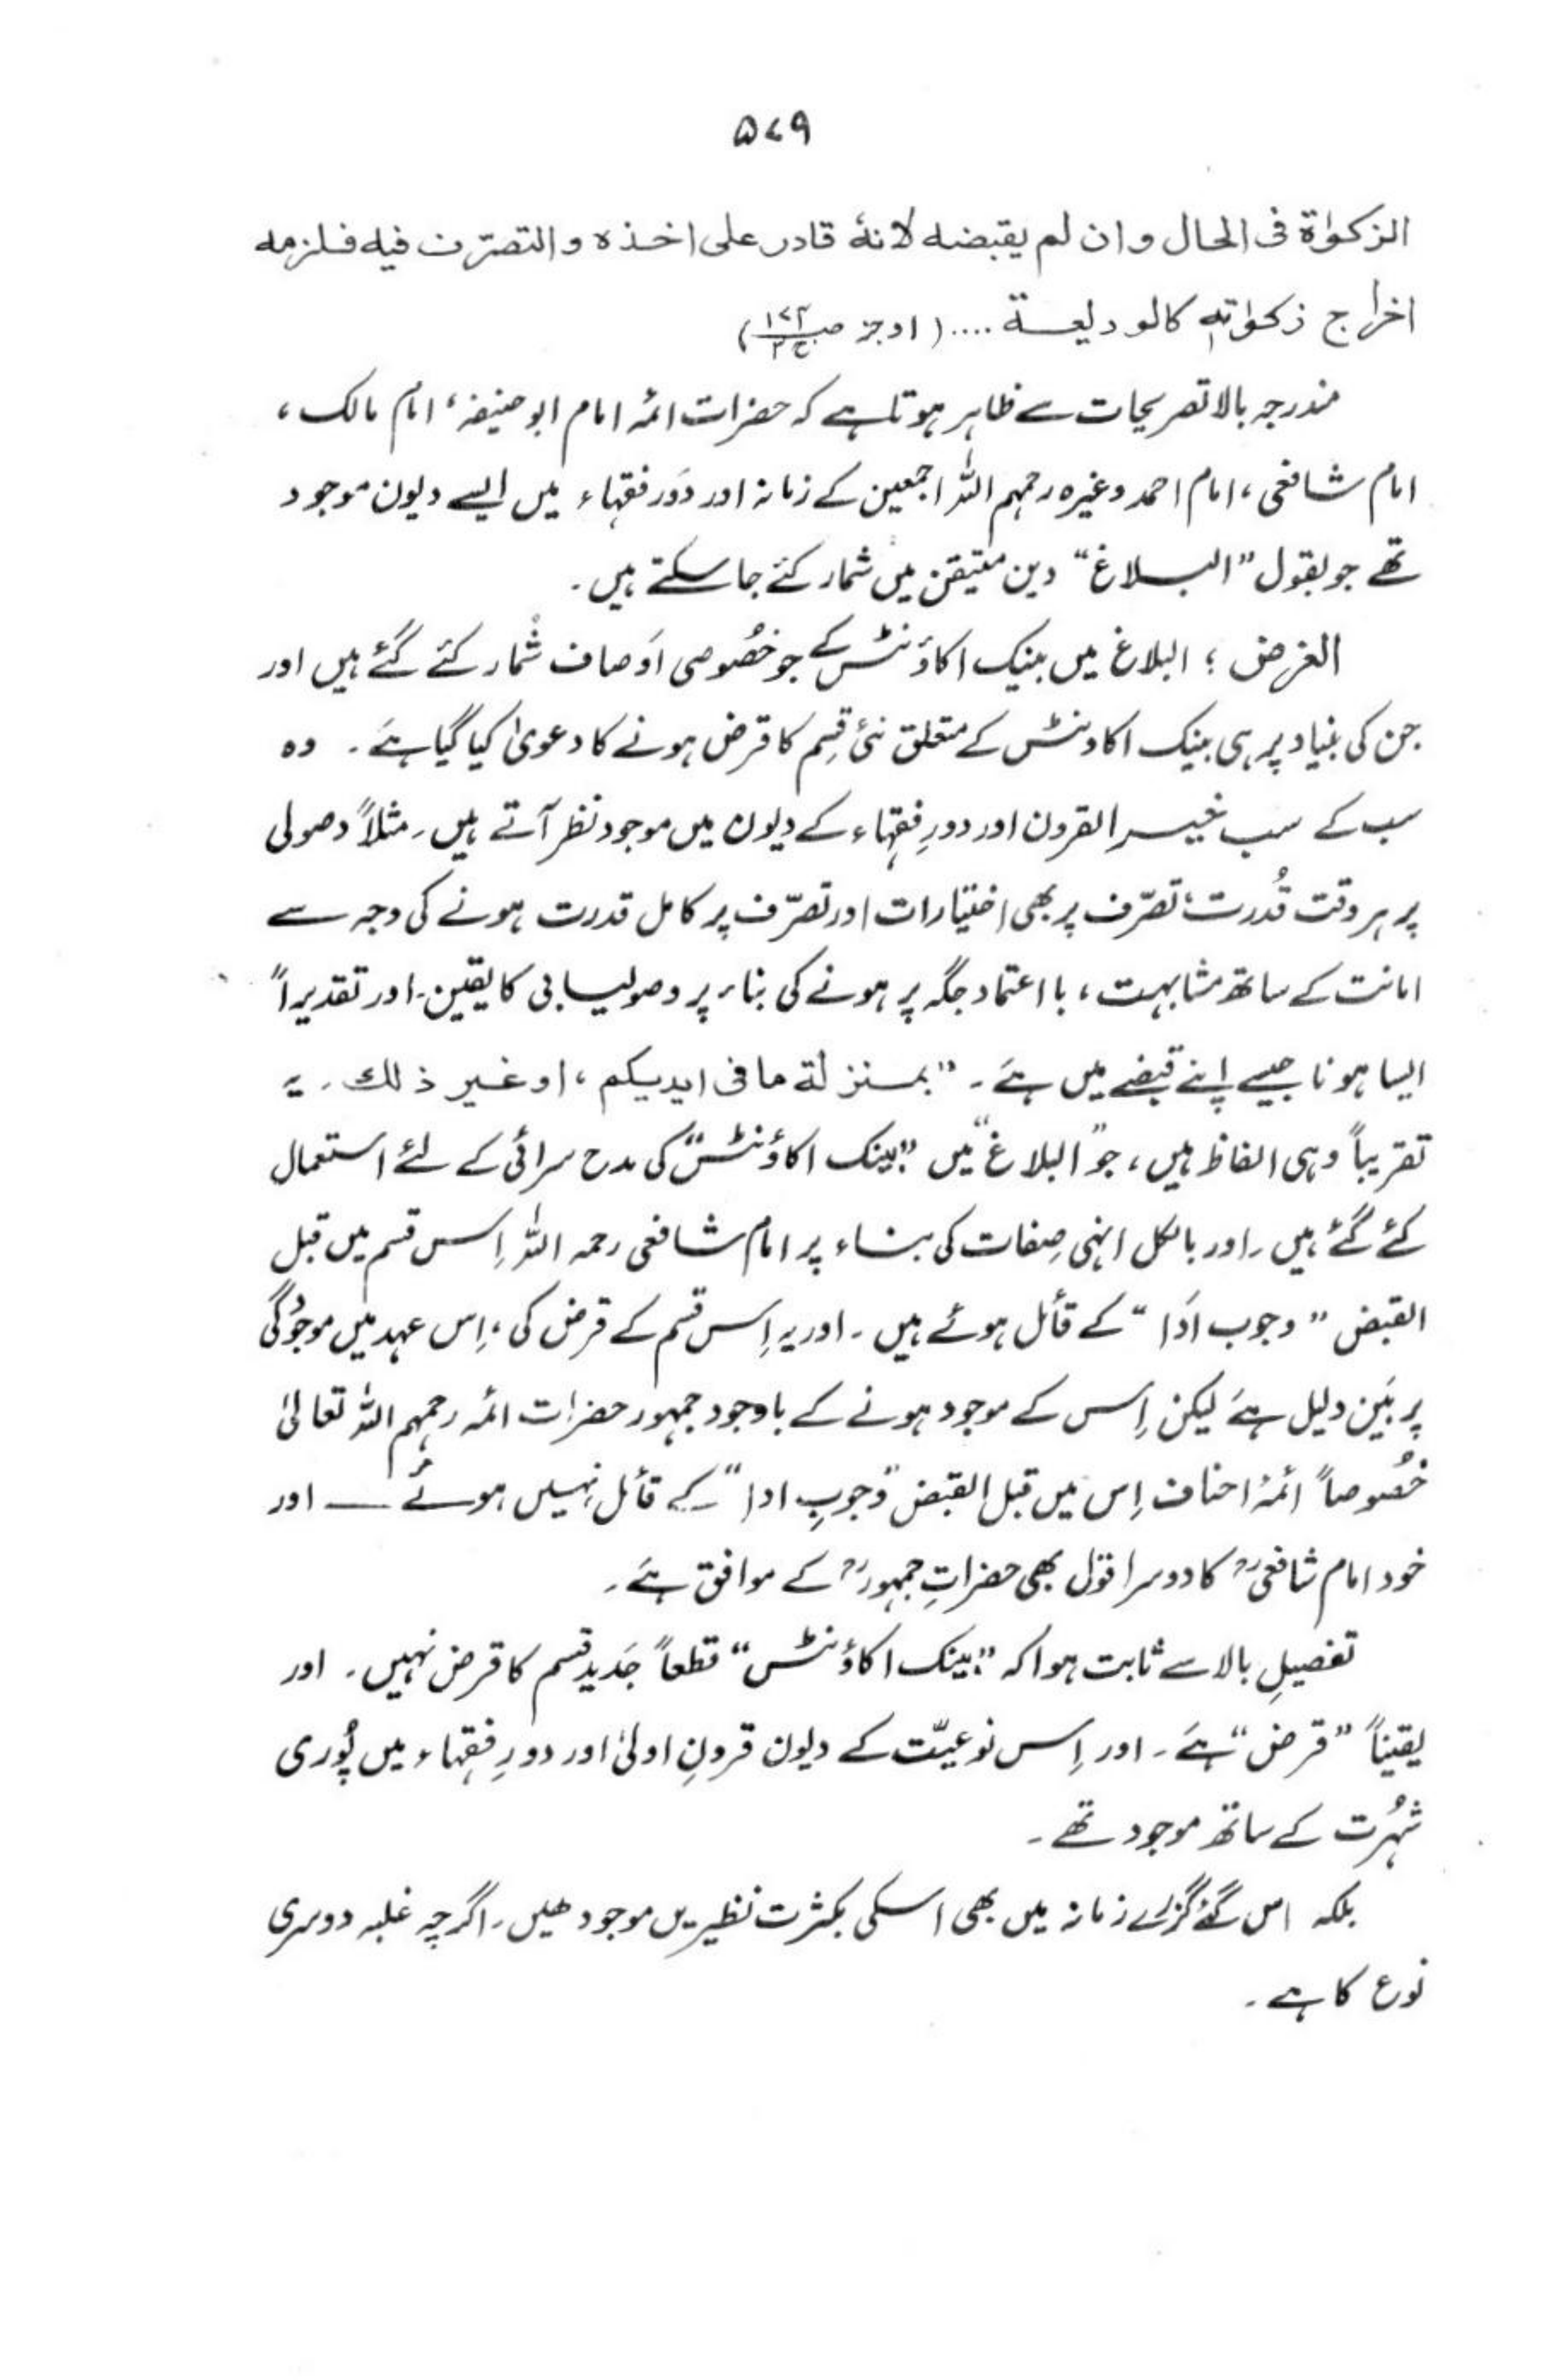 ۵۷۹
الزکوٰۃ فی الحال وان لم یقبضہ لانہٗ قادر علی اخذہ والتصرّف فیہ فلزمہ
اخراج زکوٰتہٖ کالودیعۃ .... (اوجز ص۱۷۲ ج۳)
مندرجہ بالا تصریحات سے ظاہر ہوتا ہے کہ حضرات ائمہ امام ابوحنیفہ، امام مالک،
امام شافعی، امام احمد وغیرہ رحمہم اللہ اجمعین کے زمانہ اور دَور فقہاء میں ایسے دیون موجود
تھے جو بقول "البلاغ" دین متیقن میں شمار کئے جا سکتے ہیں۔
الغرض؛ البلاغ میں بینک اکاؤنٹس کے جو خصُوصی اَوصاف شُمار کئے گئے ہیں اور
جن کی بنیاد پر ہی بینک اکاونٹس کے متعلق نئی قِسم کا قرض ہونے کا دعویٰ کیا گیا ہَے۔ وہ
سب کے سب خیر القرون اور دورِ فقہاء کے دیون میں موجود نظر آتے ہیں۔ مثلاً وصولی
پر ہر وقت قُدرت، تصرّف پر بھی اختیارات اور تصرّف پر کامل قدرت ہونے کی وجہ سے
امانت کے ساتھ مشابہت، با اعتماد جگہ پر ہونے کی بناء پر وصولیابی کا یقین۔ اور تقدیراً
ایسا ہونا جیسے اپنے قبضے میں ہَے۔ "بمنزلۃ ما فی ایدیکم، او غیر ذلک۔ یہ
تقریباً وہی الفاظ ہیں، جو "البلاغ" میں "بینک اکاؤنٹس" کی مدح سرائی کے لئے استعمال
کئے گئے ہیں۔ اور بالکل انہی صِفات کی بناء پر امام شافعی رحمہ اللہ اِس قسم میں قبل
القبض "وجوب اَدَا" کے قائل ہوئے ہیں۔ اور یہ اِس قسم کے قرض کی، اِس عہد میں موجُودگی
پر بَین دلیل ہَے لیکن اِس کے موجود ہونے کے باوجود جمہور حضرات ائمہ رحمہم اللہ تعالیٰ
خصُوصاً ائمۂ احناف اِس میں قبل القبض "وجوبِ ادا" کے قائل نہیں ہوئے ـــ اور
خود امام شافعیؒ کا دوسرا قول بھی حضراتِ جمہورؒ کے موافق ہَے۔
تفصیلِ بالا سے ثابت ہوا کہ "بینک اکاؤنٹس" قطعاً جَدید قسم کا قرض نہیں۔ اور
یقیناً "قرض" ہَے۔ اور اِس نوعیّت کے دیون قرونِ اولیٰ اور دورِ فقہاء میں پُوری
شہُرت کے ساتھ موجود تھے۔
بلکہ اس گئے گزرے زمانہ میں بھی اسکی بکثرت نظیریں موجود ھیں۔ اگرچہ غلبہ دوسری
نوع کا ہے۔